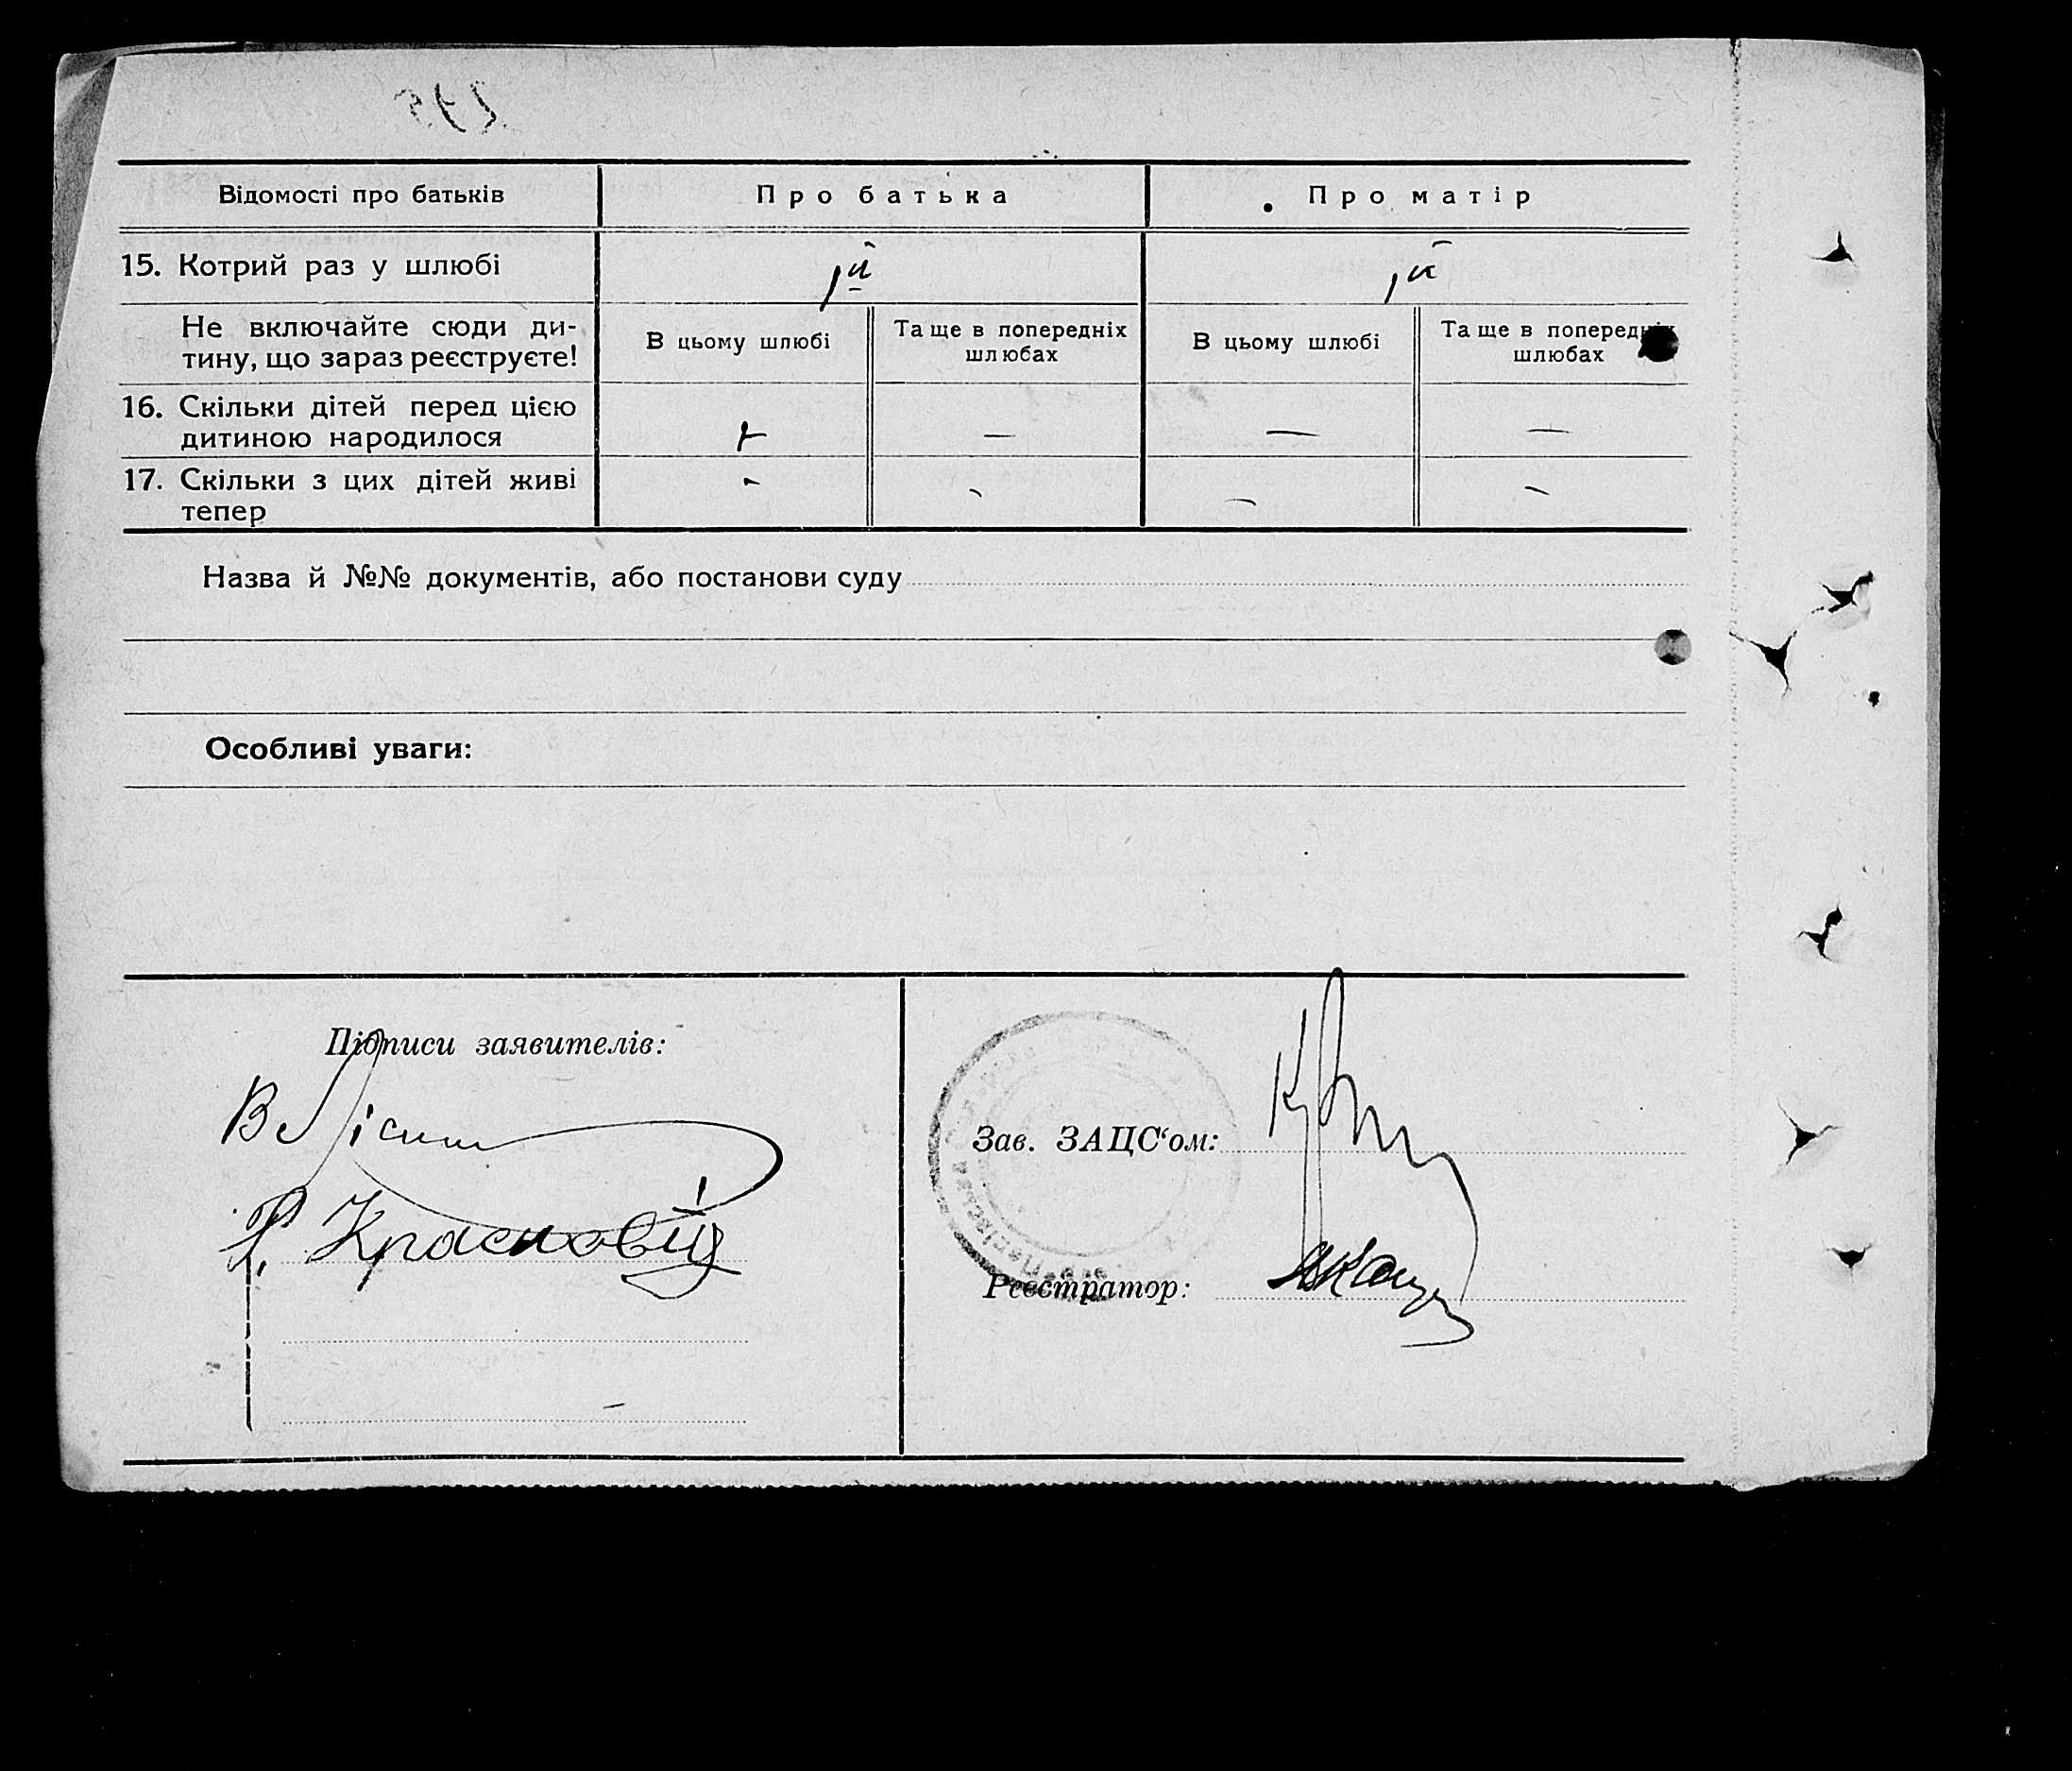 Відомості про батьків Про батька Про матір
15. Котрий раз у шлюбі 1й 1й
Не включайте сюди ди-
тину, що зараз реєструєте!
В цьому шлюбі
Та ще в попередніх
шлюбах
В цьому шлюбі
Та ще в попередніх
шлюбах
16. Скільки дітей перед цією
дитиною народилося — — —
17. Скільки з цих дітей живі
тепер - - - -
Назва й №№ документів, або постанови суду
Особливі уваги:
Підписи заявителів:
Зав. ЗАЦС'ом:
Реєстратор: